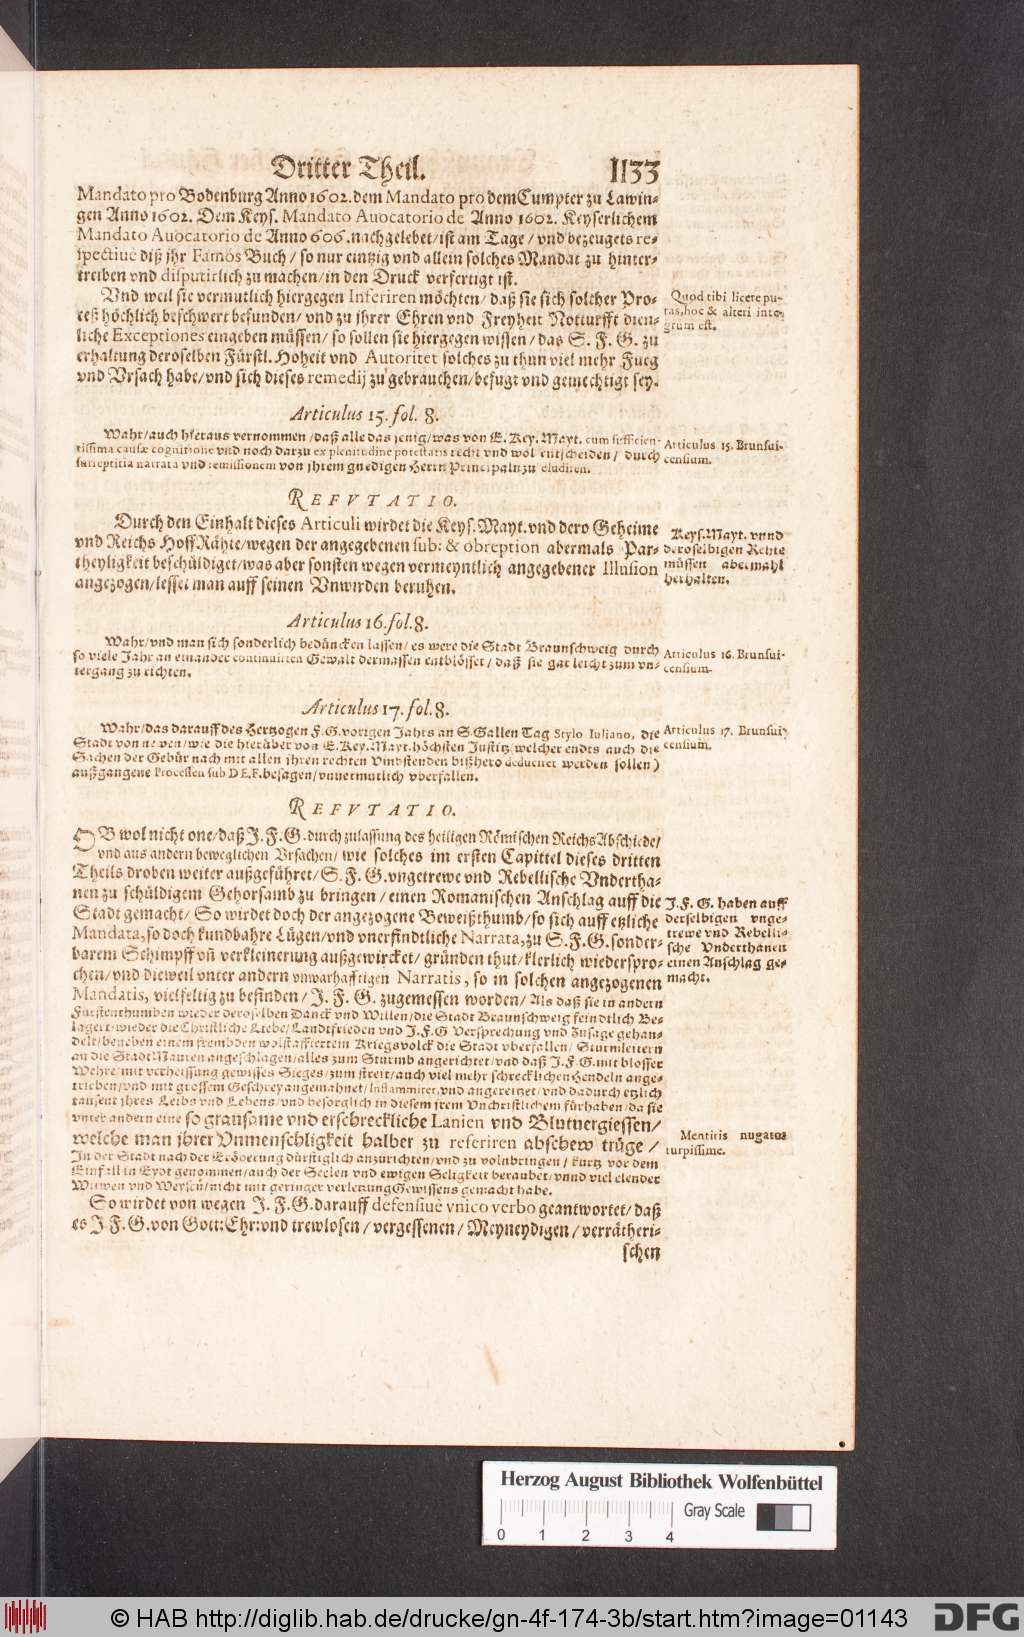 Dritter Theil. 1133
Mandato pro Bodenburg Anno 1602. dem Mandato pro dem Cumpter zu Lawin-
gen Anno 1602. Dem Keys. Mandato Auocatorio de Anno 1602. Keyserlichem
Mandato Auocatorio de Anno 606. nachgelebet/ ist am Tage / vnd bezeugets re-
spectiuè diß jhr Famos Buch / so nur eintzig vnd allein solches Mandat zu hinter-
treiben vnd disputirlich zu machen/ in den Druck verfertigt ist.
Vnd weil sie vermutlich hiergegen Inferiren möchten/ daß sie sich solcher Pro-
ceß höchlich beschwert befunden/ vnd zu jhrer Ehren vnd Freyheit Notturfft dien-
liche Exceptiones eingeben müssen/ so sollen sie hiergegen wissen/ das S. F. G. zu
erhaltung deroselben Fürstl. Hoheit vnd Autoritet solches zu thun viel mehr Fueg
vnd Vrsach habe/ vnd sich dieses remedij zu gebrauchen/ befugt vnd gemechtigt sey.
Quod tibi licere pu-
tas, hoc & alteri inte-
grum est.
Articulus 15. fol. 8.
Wahr/ auch hieraus vernommen/ daß alle das jenig/ was von E. Key. Mayt. cum sufficien-
tissima causæ cognitione vnd noch darzu ex plenitudine potestatis recht vnd wol entscheiden/ durch
surreptitia narrata vnd remissionem von jhrem gnedigen Herrn Principaln zu eludiren.
Articulus 15. Brunsui-
censium.
REFVTATIO.
Durch den Einhalt dieses Articuli wirdet die Keys. Mayt. vnd dero Geheime
vnd Reichs Hoff Rähte/ wegen der angegebenen sub: & obreption abermals Par-
theyligkeit beschüldiget/ was aber sonsten wegen vermeyntlich angegebener Illusion
angezogen/ lesset man auff seinen Vnwirden beruhen.
Keys. Mayt. vnnd
deroselbigen Rehte
müssen abermahl
herhalten.
Articulus 16. fol. 8.
Wahr/ vnd man sich sonderlich bedüncken lassen/ es were die Stadt Braunschweig durch
so viele Jahr an einander continuirten Gewalt dermassen entblösset/ daß sie gar leicht zum vn-
tergang zu richten.
Articulus 16. Brunsui-
censium.
Articulus 17. fol. 8.
Wahr/ das darauff des Hertzogen F. G. vorigen Jahrs an S. Gallen Tag Stylo Iuliano, die
Stadt von newen/ wie die hierüber von E. Key. Mayt. höchsten Justitz/ welcher endts auch die
Sachen der Gebür nach mit allen jhren rechten Vmbstenden bißhero deduciret werden sollen)
außgangene Processen sub D E. F. besagen/ vnuermutlich vberfallen.
Articulus 17. Brunsui-
censium.
REFVTATIO.
OB wol nicht one/ daß J. F. G. durch zulassung des heiligen Römischen Reichs Abschiede/
vnd aus andern beweglichen Vrsachen/ wie solches im ersten Capittel dieses dritten
Theils droben weiter außgeführet/ S. F. G. vngetrewe vnd Rebellische Vndertha-
nen zu schüldigem Gehorsamb zu bringen/ einen Romanischen Anschlag auff die
Stadt gemacht/ So wirdet doch der angezogene Beweißthumb/ so sich auff etzliche
Mandata, so doch kundbahre Lügen/ vnd vnerfindtliche Narrata, zu S. F. G. sonder-
barem Schimpff vñ verkleinerung außgewircket/ gründen thut/ klerlich wiederspro-
chen/ vnd dieweil vnter andern vnwarhafftigen Narratis, so in solchen angezogenen
Mandatis, vielfeltig zu befinden/ J. F. G. zugemessen worden/ Als daß sie in andern
Fürstenthumben wieder deroselben Danck vnd Willen/ die Stadt Braunschweig feindtlich Be-
lagert/ wieder die Christliche Liebe/ Landtfrieden vnd J. F. G Versprechung vnd Zusage gehan-
delt/ beneben einem frembden wolstaffiertem Kriegsvolck die Stadt vberfallen/ Sturmleitern
an die Stadt Mauren angeschlagen/ alles zum Sturmb angerichtet/ vnd daß J. F. G. mit blosser
Wehre/ mit verheissung gewisses Sieges/ zum streit/ auch viel mehr schrecklichen Hendeln ange-
trieben/ vnd mit grossem Geschrey angemahnet/ Inflammiret, vnd angereitzet/ vnd dadurch etzlich
tausent jhres Leibs vnd Lebens/ vnd besorglich in diesem jrem Vnchristlichem fürhaben/ da sie
vnter andern eine so grausame vnd erschreckliche Lanien vnd Blutuergiessen/
welche man jhrer Vnmenschligkeit halber zu referiren abschew trüge /
In der Stadt nach der Eröberung dürstiglich anzurichten/ vnd zu volnbringen/ kurtz vor dem
Einfall in Eydt genommen/ auch der Seelen vnd ewigen Seligkeit beraubet/ vnnd viel elender
Witwen vnd Weysen/ nicht mit geringer verletzung Gewissens gemacht habe.
J. F. G. haben auff
derselbigen vnge-
trewe vnd Rebelli-
sche Vnderthanen
einen Anschlag ge-
macht.
Mentiris nugator
turpissime.
So wirdet von wegen J. F. G. darauff defensiuè vnico verbo geantwortet/ daß
es J. F. G. von Gott: Ehr: vnd trewlosen / vergessenen/ Meyneydigen / verrätheri-
schen
Herzog August Bibliothek Wolfenbüttel
Gray Scale
0 1 2 3 4
© HAB http://diglib.hab.de/drucke/gn-4f-174-3b/start.htm?image=01143 DFG